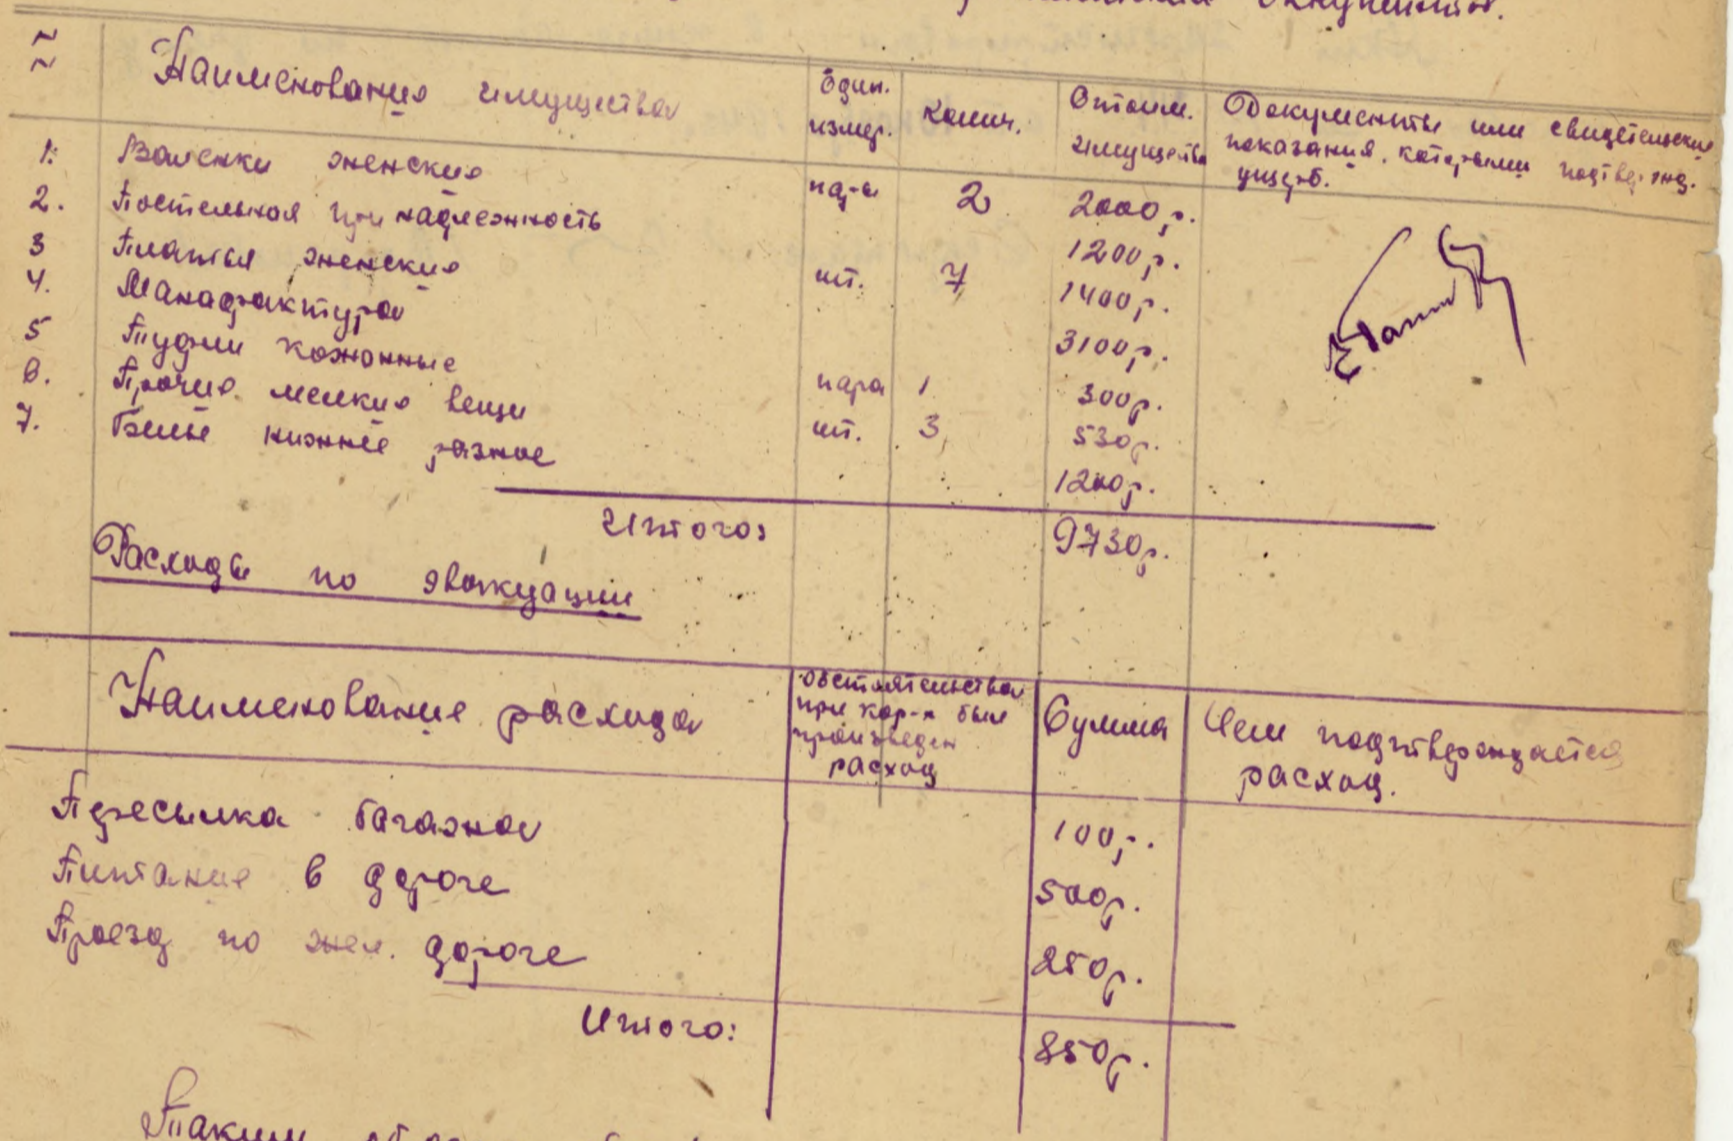 документов.
№№ Наименование имущества Един. измер. Колич. Стоим. имущества Документы или свидетельские показания, которыми подтвержд. ущерб.
1. Валенки женские пара 2 2000р.
2. Постельная принадлежность 1200р.
3 Платья женские шт. 7 1400р.
4. Манафактура 3100р.
5 Туфли кожанные пара 1 300р.
6. Прочие мелкие вещи 530р.
7. Бельё нижнее разное шт. 3 1200р.
Итого: 9730р.
Расходы по эвакуации
Наименование расхода Обстоятельства при кор-х был произведен расход Сумма Чем подтверждается расход.
Пересылка багажа 100р.
Питание в дороге 500р.
Проезд по жел. дороге 250р.
Итого: 850р.
Таким